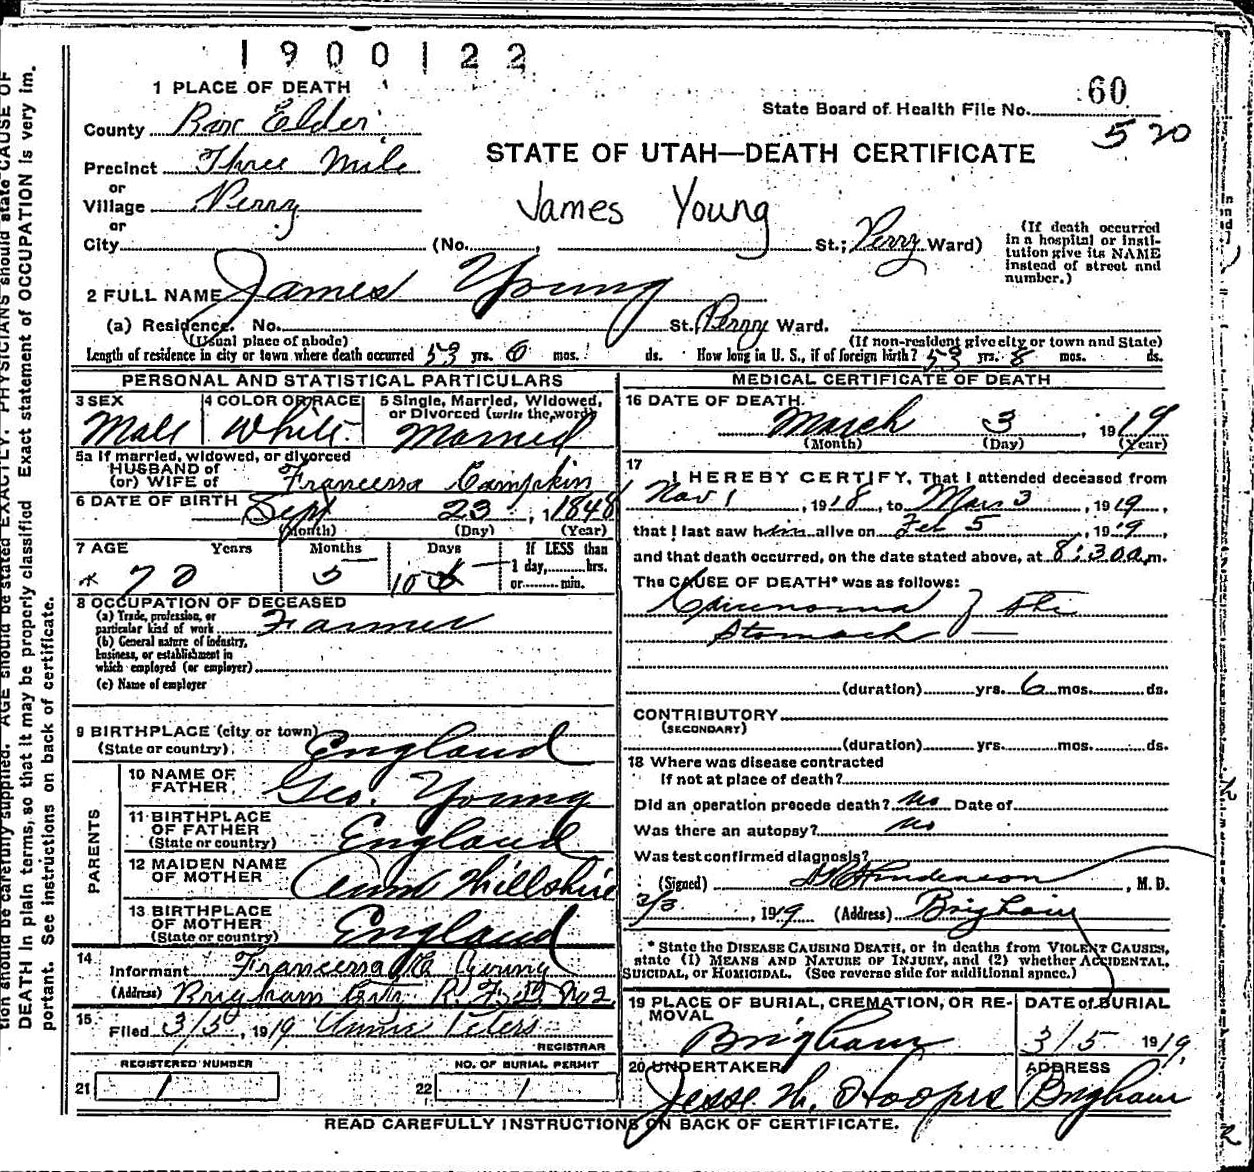 1900122
1 PLACE OF DEATH
60
State Board of Health File No.
520
County Box Elder
STATE OF UTAH—DEATH CERTIFICATE
Precinct Three Mile
or
Village Perry
James Young
or
City (No. , St.; Perry Ward)
(If death occurred
in a hospital or insti-
tution give its NAME
instead of street and
number.)
2 FULL NAME James Young
(a) Residence. No. St. Perry Ward.
(Usual place of abode)
(If non-resident give city or town and State)
Length of residence in city or town where death occurred 53 yrs. 0 mos. ds. How long in U. S., if of foreign birth? 53 yrs. 8 mos. ds.
PERSONAL AND STATISTICAL PARTICULARS
3 SEX
Male
4 COLOR OR RACE
White
5 Single, Married, Widowed,
or Divorced (write the word)
Married
5a If married, widowed, or divorced
HUSBAND of
(or) WIFE of Francessa Campkin
6 DATE OF BIRTH Sept 23, 1848
(Month) (Day) (Year)
7 AGE Years Months Days If LESS than
70 5 10 1 day, hrs.
or min.
8 OCCUPATION OF DECEASED
(a) Trade, profession, or
particular kind of work Farmer
(b) General nature of industry,
business, or establishment in
which employed (or employer)
(c) Name of employer
9 BIRTHPLACE (city or town)
(State or country) England
PARENTS
10 NAME OF
FATHER Geo. Young
11 BIRTHPLACE
OF FATHER
(State or country) England
12 MAIDEN NAME
OF MOTHER Ann Willshire
13 BIRTHPLACE
OF MOTHER
(State or country) England
14
Informant Francessa C Young
(Address) Brigham City R.F.D. No 2
15
Filed 3/5, 1919 Annie Peters
REGISTRAR
REGISTERED NUMBER
21 1
NO. OF BURIAL PERMIT
22 1
MEDICAL CERTIFICATE OF DEATH
16 DATE OF DEATH
March 3, 1919
(Month) (Day) (Year)
17
I HEREBY CERTIFY, That I attended deceased from
Nov 1, 1918, to Mar 3, 1919,
that I last saw him alive on Feb 5, 1919,
and that death occurred, on the date stated above, at 8:30 a.m.
The CAUSE OF DEATH* was as follows:
Stomach
(duration) yrs. 6 mos. ds.
CONTRIBUTORY
(SECONDARY)
(duration) yrs. mos. ds.
18 Where was disease contracted
If not at place of death?
Did an operation precede death? no Date of
Was there an autopsy? no
Was test confirmed diagnosis?
(Signed) Henderson, M. D.
3/3, 1919 (Address) Brigham
* State the DISEASE CAUSING DEATH, or in deaths from VIOLENT CAUSES,
state (1) MEANS AND NATURE OF INJURY, and (2) whether ACCIDENTAL,
SUICIDAL, or HOMICIDAL. (See reverse side for additional space.)
19 PLACE OF BURIAL, CREMATION, OR RE-
MOVAL
Brigham
DATE of BURIAL
3/5 1919
20 UNDERTAKER
Jesse W. Hoopes
ADDRESS
Brigham
READ CAREFULLY INSTRUCTIONS ON BACK OF CERTIFICATE.
tion should be carefully supplied. AGE should be stated EXACTLY. PHYSICIANS should state CAUSE OF
DEATH in plain terms, so that it may be properly classified Exact statement of OCCUPATION is very im.
portant. See instructions on back of certificate.